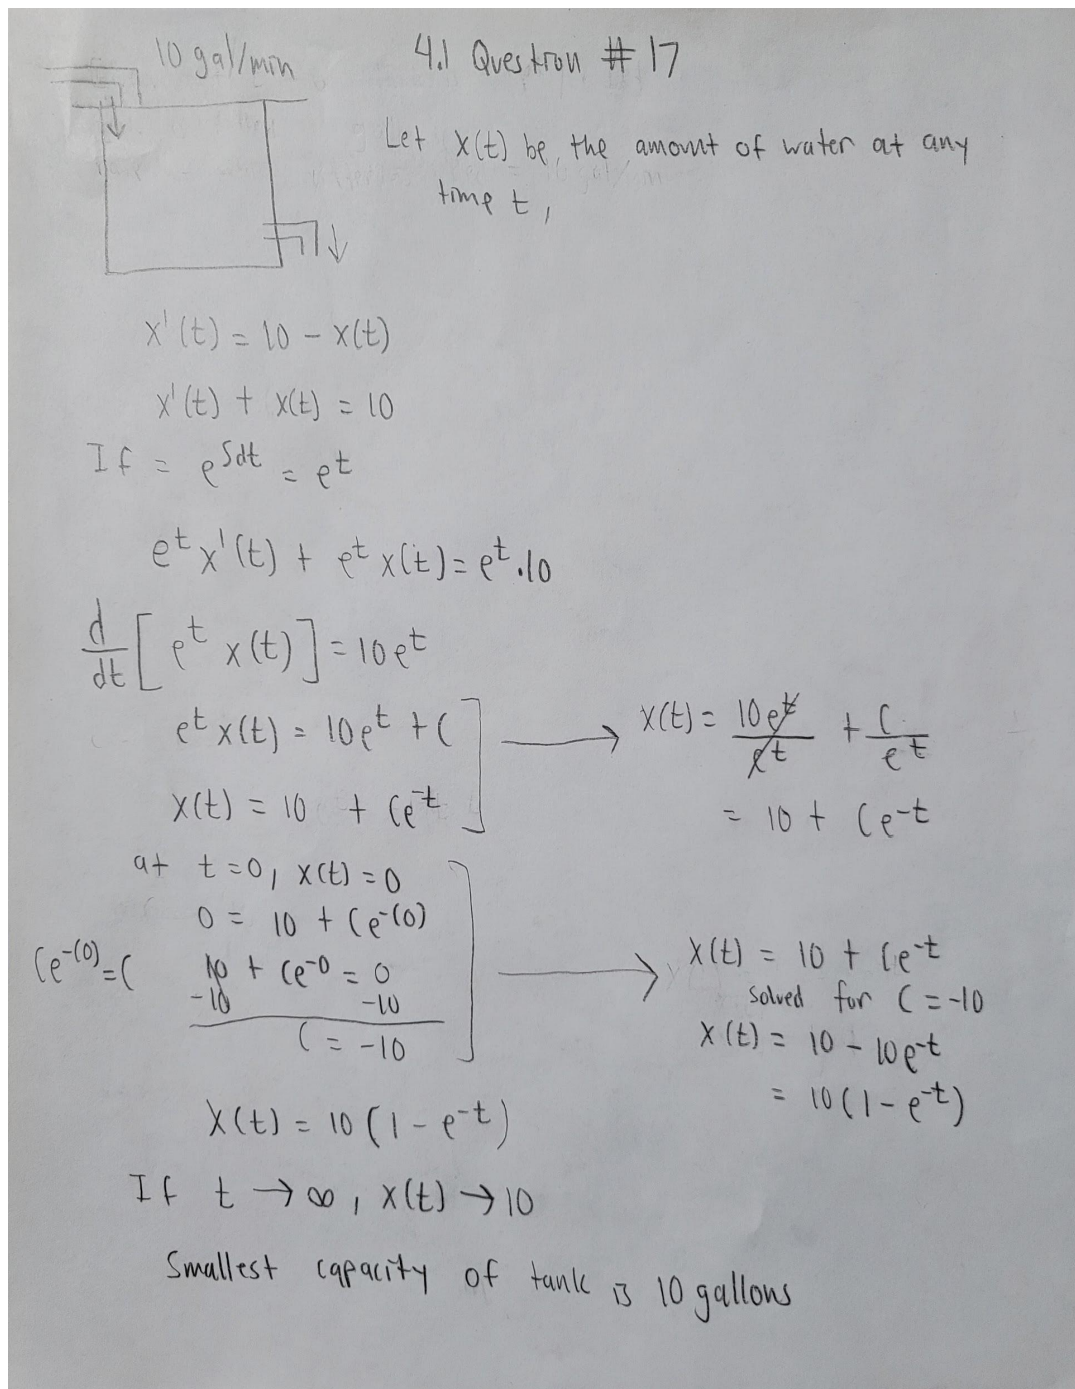 10 gal/min
4.1 Question # 17
Let x(t) be, the amount of water at any
time t,
x'(t) = 10 - x(t)
x'(t) + x(t) = 10
If = e^∫dt = e^t
e^t x'(t) + e^t x(t) = e^t . 10
d/dt [e^t x(t)] = 10e^t
e^t x(t) = 10e^t + C
x(t) = 10 + Ce^-t
x(t) = 10e^t/e^t + C/e^t
= 10 + Ce^-t
at t=0, x(t) = 0
0 = 10 + Ce^-(0)
Ce^-(0) = C
10 + Ce^-0 = 0
-10 -10
C = -10
x(t) = 10 + Ce^-t
Solved for C = -10
x(t) = 10 - 10e^-t
= 10(1 - e^-t)
x(t) = 10(1 - e^-t)
If t → ∞, x(t) → 10
Smallest capacity of tank is 10 gallons